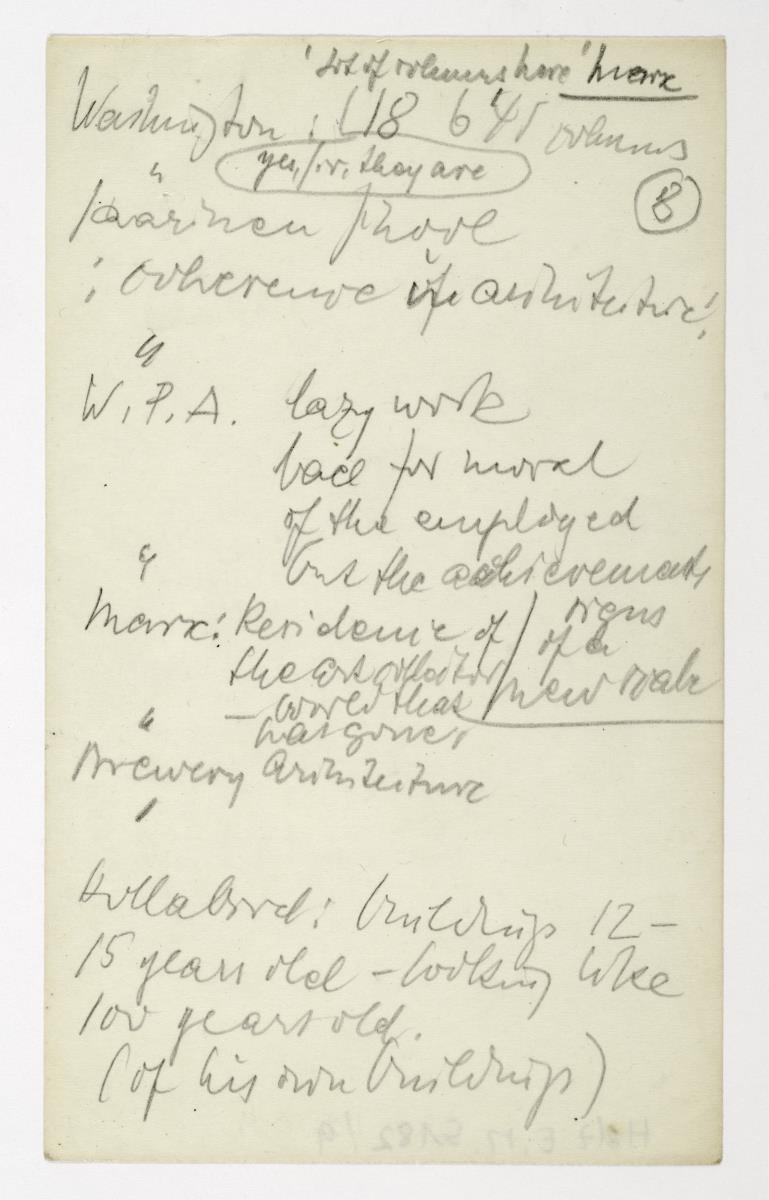 'lot of columns here' Marx
Washington : 118 6'45 columns
" yes, sir, they are
8
Saarinen School
: coherence in architecture!
"
W.P.A. lazy work
bad for moral
of the employed
" but the achievements
Marx: Residence of / signs
the art collector / of a
– world that / new scale
" was gone,
Brewery Architecture
Hollabird: buildings 12 –
15 years old – looking like
100 years old.
(of his own buildings)